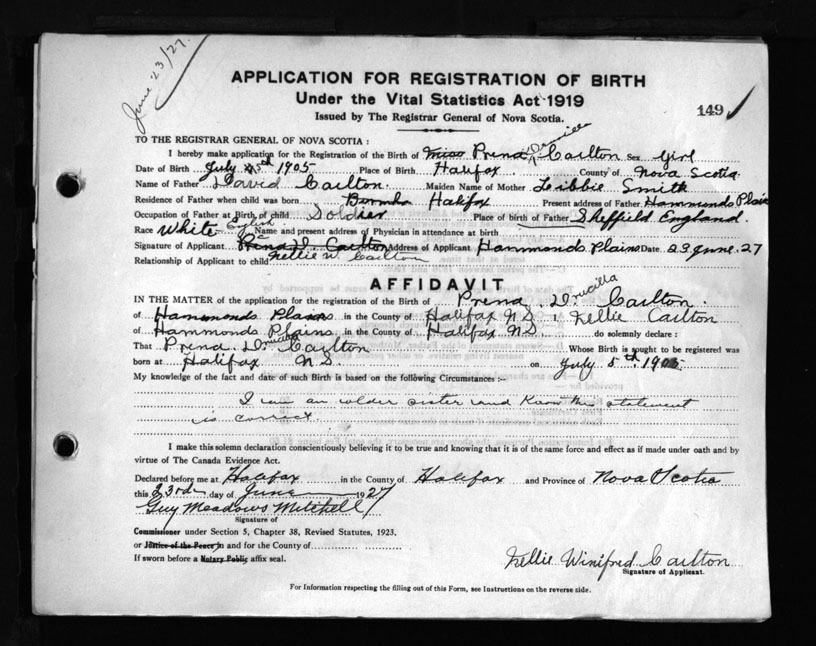 June 23/27.
APPLICATION FOR REGISTRATION OF BIRTH
Under the Vital Statistics Act 1919
149
Issued by The Registrar General of Nova Scotia.
TO THE REGISTRAR GENERAL OF NOVA SCOTIA :
I hereby make application for the Registration of the Birth of Miss Prena Drucilla Carlton Sex Girl
Date of Birth July 5th 1905 Place of Birth Halifax County of Nova Scotia
Name of Father David Carlton. Maiden Name of Mother Libbie Smith
Residence of Father when child was born Halifax Present address of Father Hammonds Plain
Occupation of Father at Birth of child Soldier Place of birth of Father Sheffield England.
Race White English Name and present address of Physician in attendance at birth
Signature of Applicant Prena D. Carlton Address of Applicant Hammonds Plains Date 23 June. 27
Relationship of Applicant to child Nellie W. Carlton
AFFIDAVIT
IN THE MATTER of the application for the registration of the Birth of Prena Drucilla Carlton.
of Hammonds Plains in the County of Halifax N.S. I Nellie Carlton
of Hammonds Plains in the County of Halifax N.S. do solemnly declare :
That Prena Drucilla Carlton Whose Birth is sought to be registered was
born at Halifax N.S. on July 5th 1905
My knowledge of the fact and date of such Birth is based on the following Circumstances :-
I am an older sister and know this statement
is correct.
I make this solemn declaration conscientiously believing it to be true and knowing that it is of the same force and effect as if made under oath and by
virtue of The Canada Evidence Act.
Declared before me at Halifax in the County of Halifax and Province of Nova Scotia
this 23rd day of June 1927
Guy Meadows Mitchell
Signature of
Commissioner under Section 5, Chapter 38, Revised Statutes, 1923,
or Justice of the Peace in and for the County of
If sworn before a Notary Public affix seal.
Nellie Winifred Carlton
Signature of Applicant.
For Information respecting the filling out of this Form, see Instructions on the reverse side.